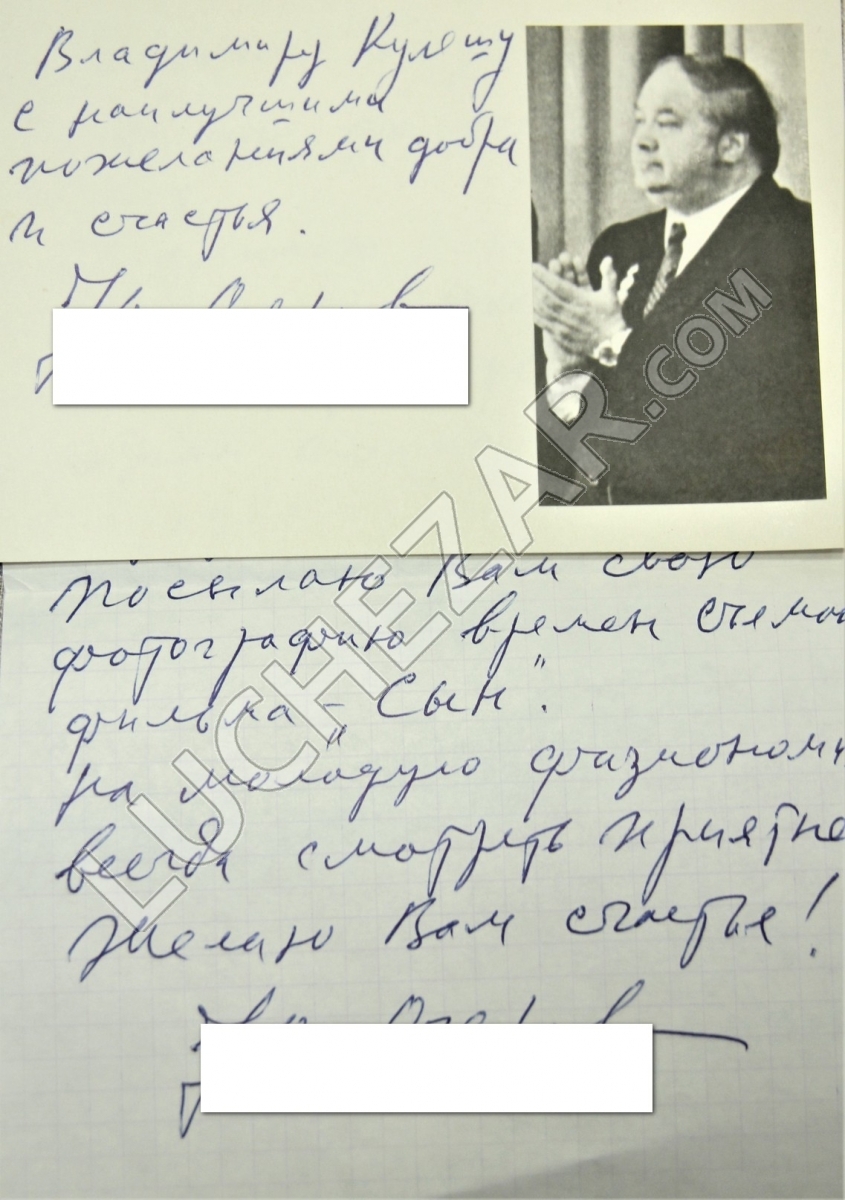 Владимиру Кулешу
с наилучшими
пожеланиями добра
и счастья.
LUCHEZAR.COM
посылаю Вам свою
фотографию времен съемок
фильма – „Сын".
на молодую физиономи
всегда смотреть приятне
Желаю Вам счастья!